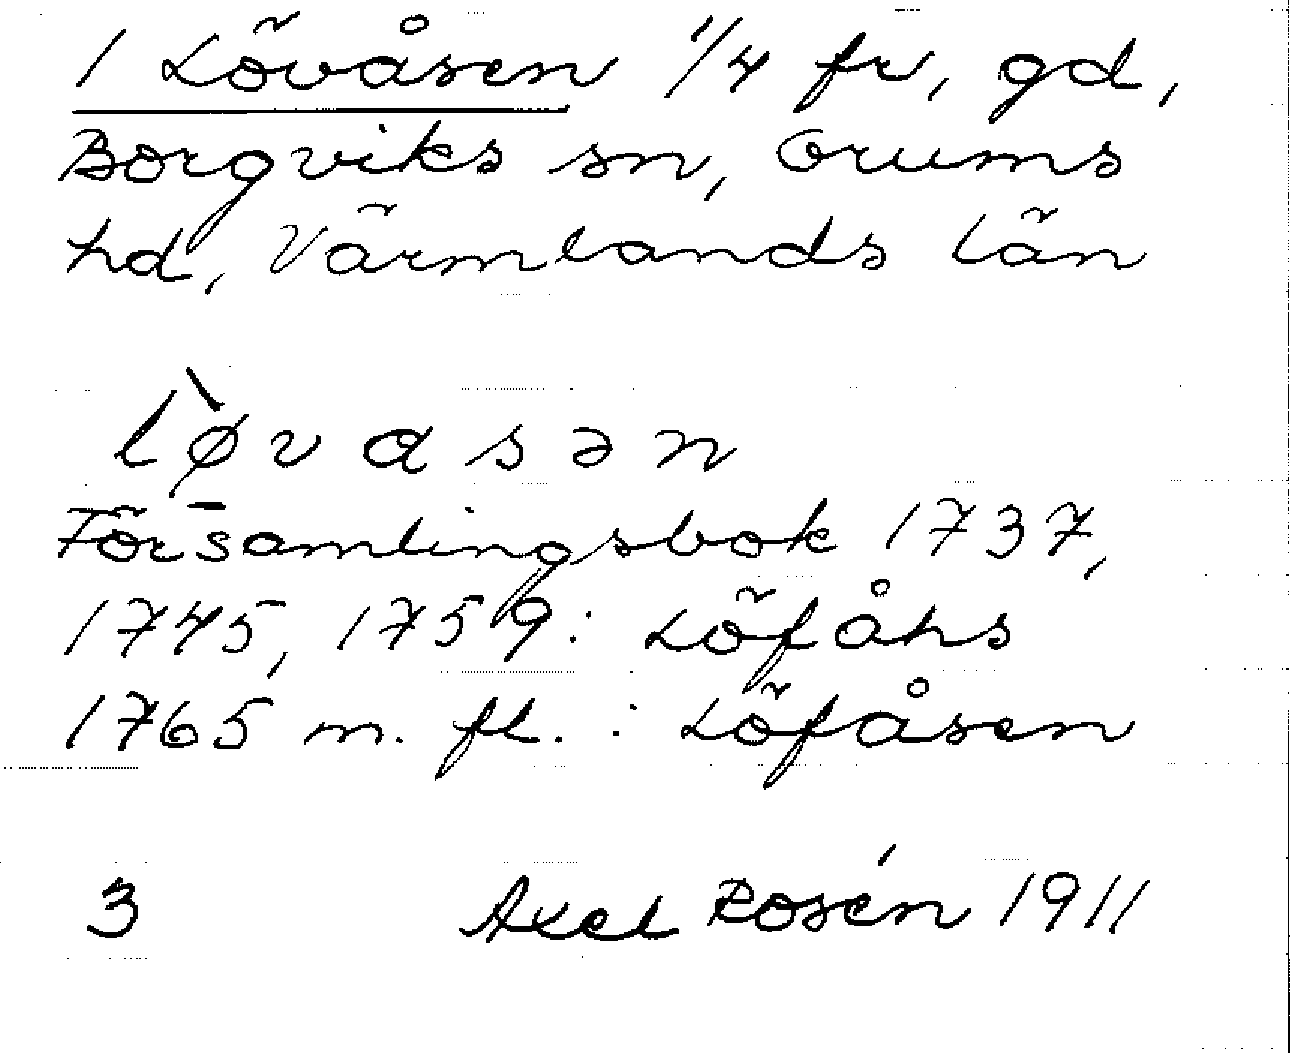 1 Lövåsen 1/4 fr, gd,
Borgviks sn, Grums
hd, Värmlands län
lø̀vasən
Församlingsbok 1737,
1745, 1759: Löfåhs
1765 m. fl. : Löfåsen
3 Axel Rosén 1911